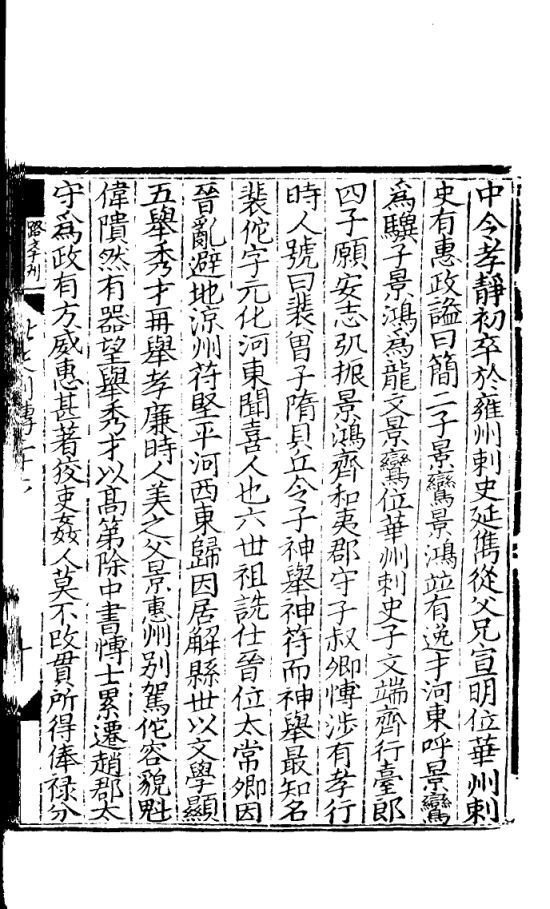 中令孝靜初卒於雍州刺史延儁從父兄宣明位華州刺
史有惠政謚曰簡二子景鸞景鴻並有逸才河東呼景鸞
為驥子景鴻為龍文景鸞位華州刺史子文端齊行臺郎
四子願安志弘振景鴻齊和夷郡守子叔卿慱涉有孝行
時人號曰裴曾子隋貝丘令子神舉神符而神舉最知名
裴佗字元化河東聞喜人也六世祖詵仕晉位太常卿因
晉亂避地涼州苻堅平河西東歸因居解縣世以文學顯
五舉秀才再舉孝廉時人美之父景惠州別駕佗容貌魁
偉隤然有器望舉秀才以高第除中書慱士累遷趙郡太
守為政有方威惠甚著狡吏姦人莫不改貫所得俸祿分
路孝刊
北史列傳二十六
十